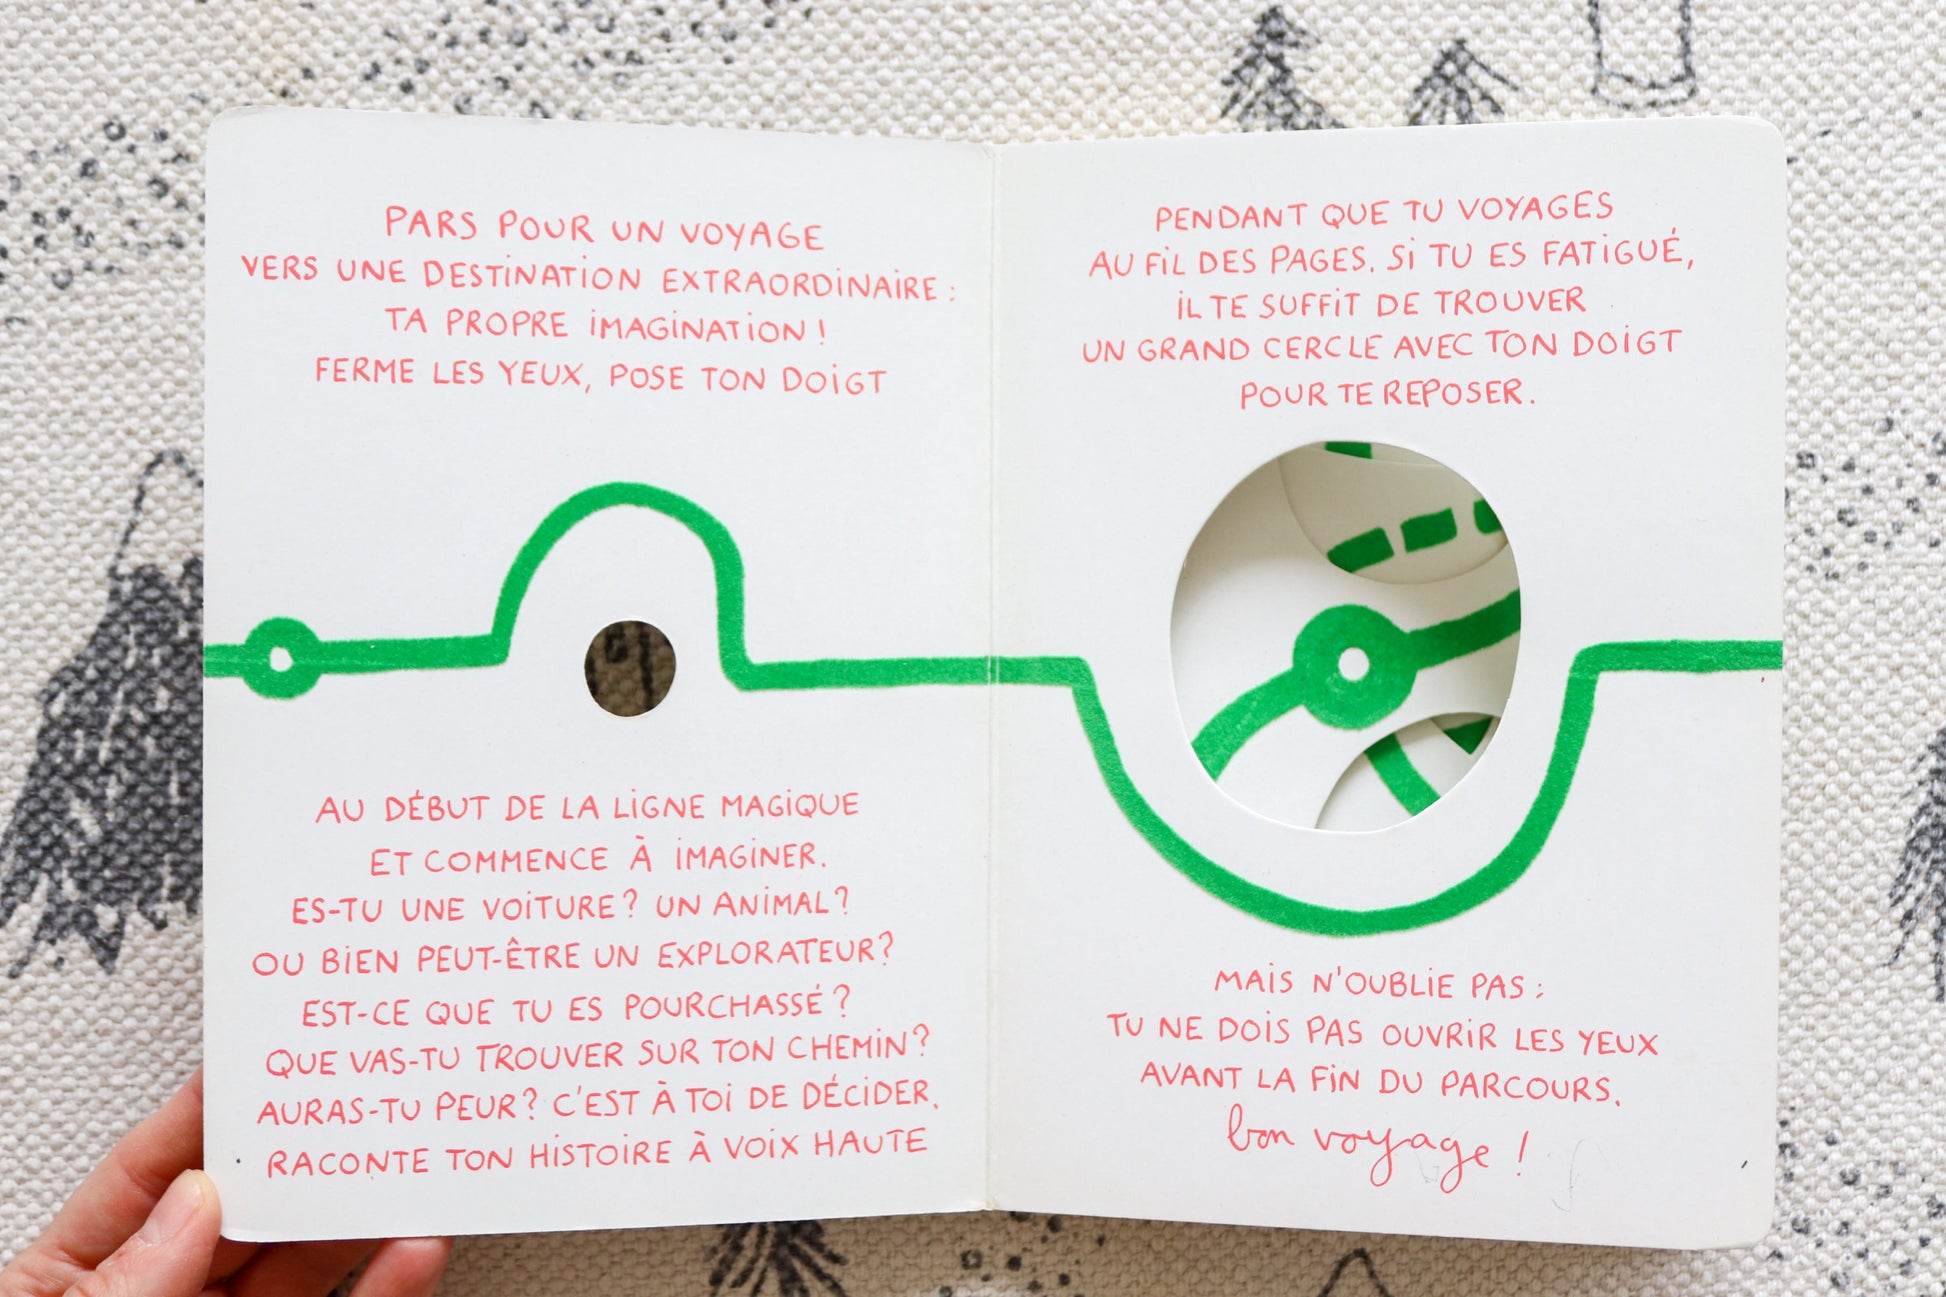 PARS POUR UN VOYAGE
VERS UNE DESTINATION EXTRAORDINAIRE :
TA PROPRE IMAGINATION !
FERME LES YEUX, POSE TON DOIGT
AU DÉBUT DE LA LIGNE MAGIQUE
ET COMMENCE À IMAGINER.
ES-TU UNE VOITURE ? UN ANIMAL ?
OU BIEN PEUT-ÊTRE UN EXPLORATEUR ?
EST-CE QUE TU ES POURCHASSÉ ?
QUE VAS-TU TROUVER SUR TON CHEMIN ?
AURAS-TU PEUR ? C'EST À TOI DE DÉCIDER.
RACONTE TON HISTOIRE À VOIX HAUTE
PENDANT QUE TU VOYAGES
AU FIL DES PAGES. SI TU ES FATIGUÉ,
IL TE SUFFIT DE TROUVER
UN GRAND CERCLE AVEC TON DOIGT
POUR TE REPOSER.
MAIS N'OUBLIE PAS :
TU NE DOIS PAS OUVRIR LES YEUX
AVANT LA FIN DU PARCOURS.
bon voyage !